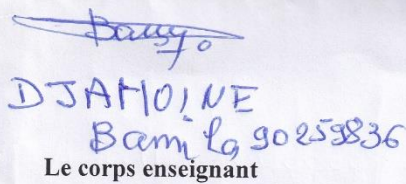 DJAMOINE
Bamila 90259836
Le corps enseignant